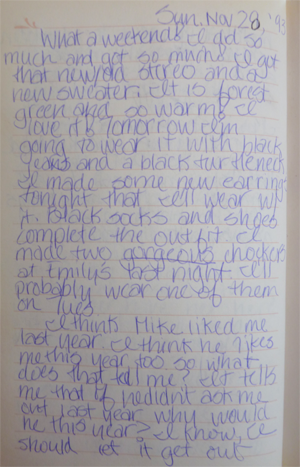 Sun. Nov 28, '93
What a weekend! I did so
much and got so much. I got
that new/old stereo and a
new sweater. It is forest
green and so warm! I
love it! Tomorrow I'm
going to wear it with black
jeans and a black turtleneck
I made some new earrings
tonight that I'll wear w/
it. Black socks and shoes
complete the outfit. I
made two gorgeous chokers
at Emily's last night. I'll
probably wear one of them
on Tues.
I think Mike liked me
last year. I think he likes
me this year too so what
does that tell me? It tells
me that if he didn't ask me
out last year why would
he this year? I know, I
should let it get out